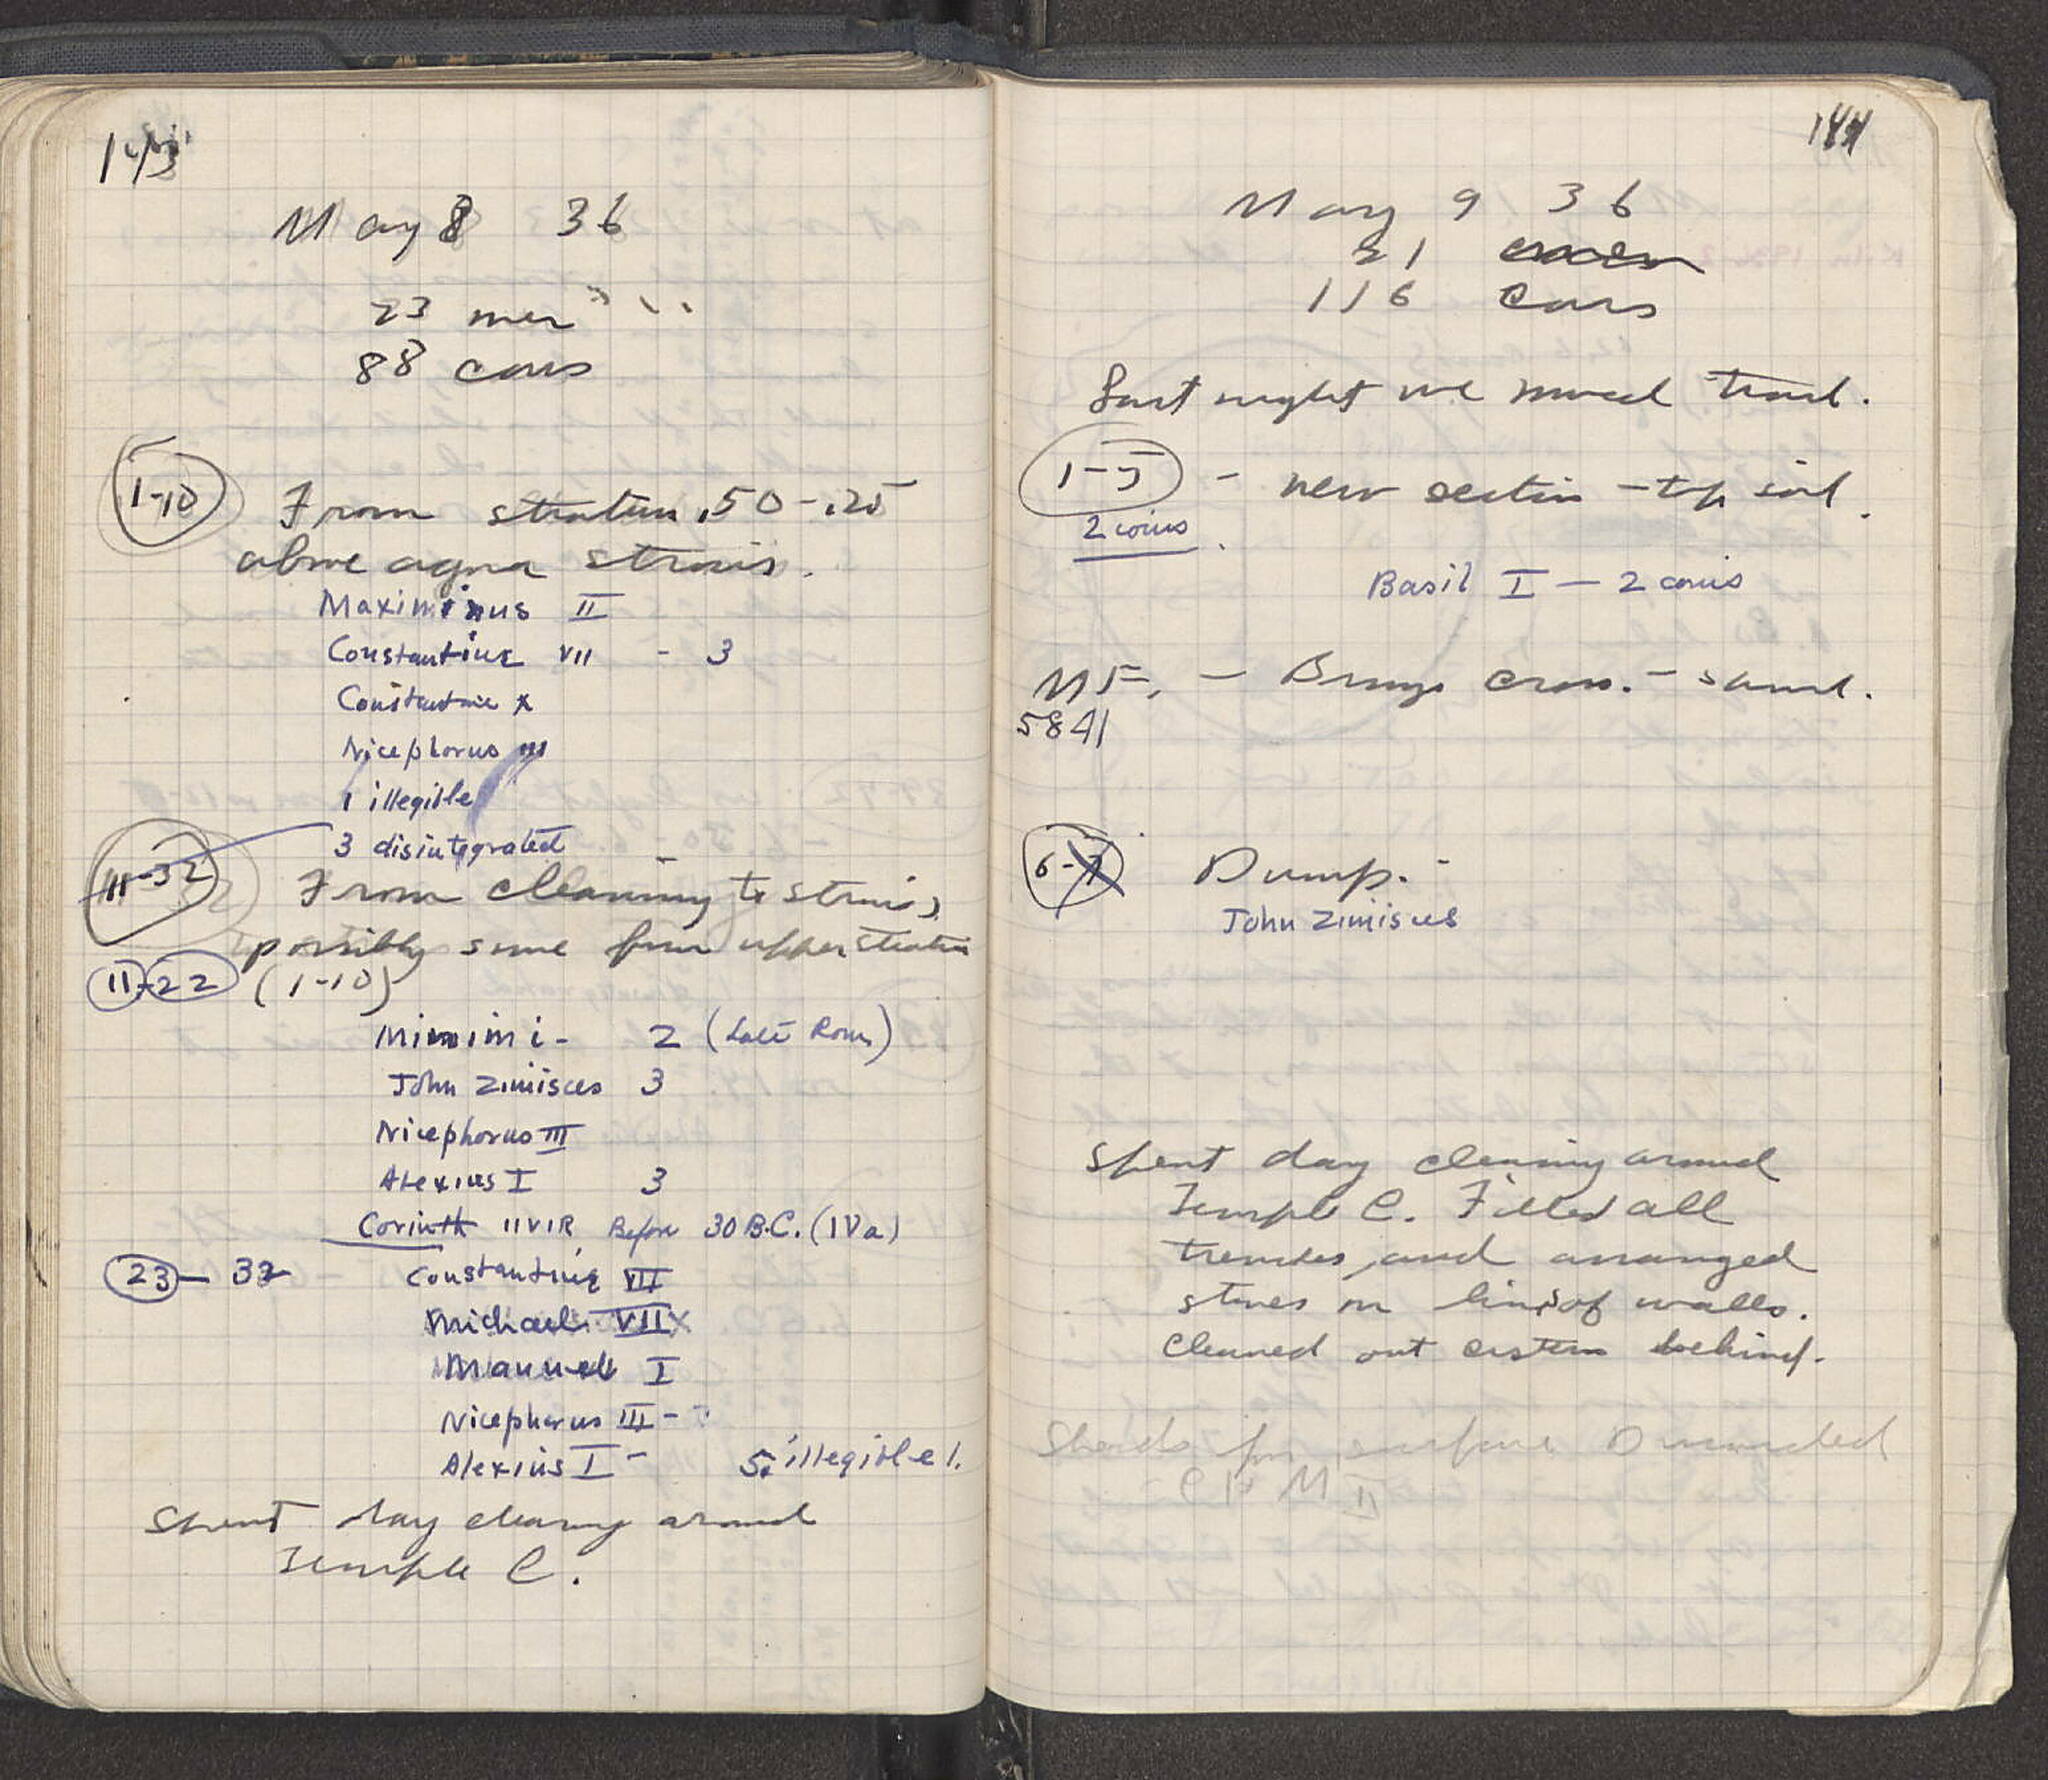 143
May 8 36
23 men
88 cars
1-10
From stratum .50-.25
above agora strosis.
Maximinus II
Constantine VII - 3
Constantine X
Nicephorus III
1 illegible
3 disintegrated
11-32
From cleaning to strosis,
possibly some from upper stratum
11-22 (1-10)
Minimi - 2 (Late Rom)
John Zimisces 3
Nicephorus III
Alexius I 3
Corinth IIVIR Before 30 B.C. (IVa)
23-32 Constantine VII
Michael VII
Manuel I
Nicephorus III -
Alexius I - 5 illegible
Spent day cleaning around
Temple C.
144
May 9 36
21
116 cars
Last night we moved track.
1-5 - new section - top soil.
2 coins
Basil I - 2 coins
MF. - Bronze cross. - sound.
5841
6-7 Dump.-
John Zimisces
Spent day cleaning around
Temple C. Filled all
trenches, and arranged
stones on lines of walls.
Cleaned out cistern behind.
Sherds for surface Discarded
CHM II